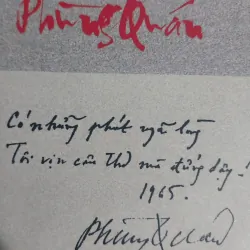 Phùng Quán
Có những phút ngã lòng
Tôi vịn câu thơ mà đứng dậy!
1965.
Phùng Quán